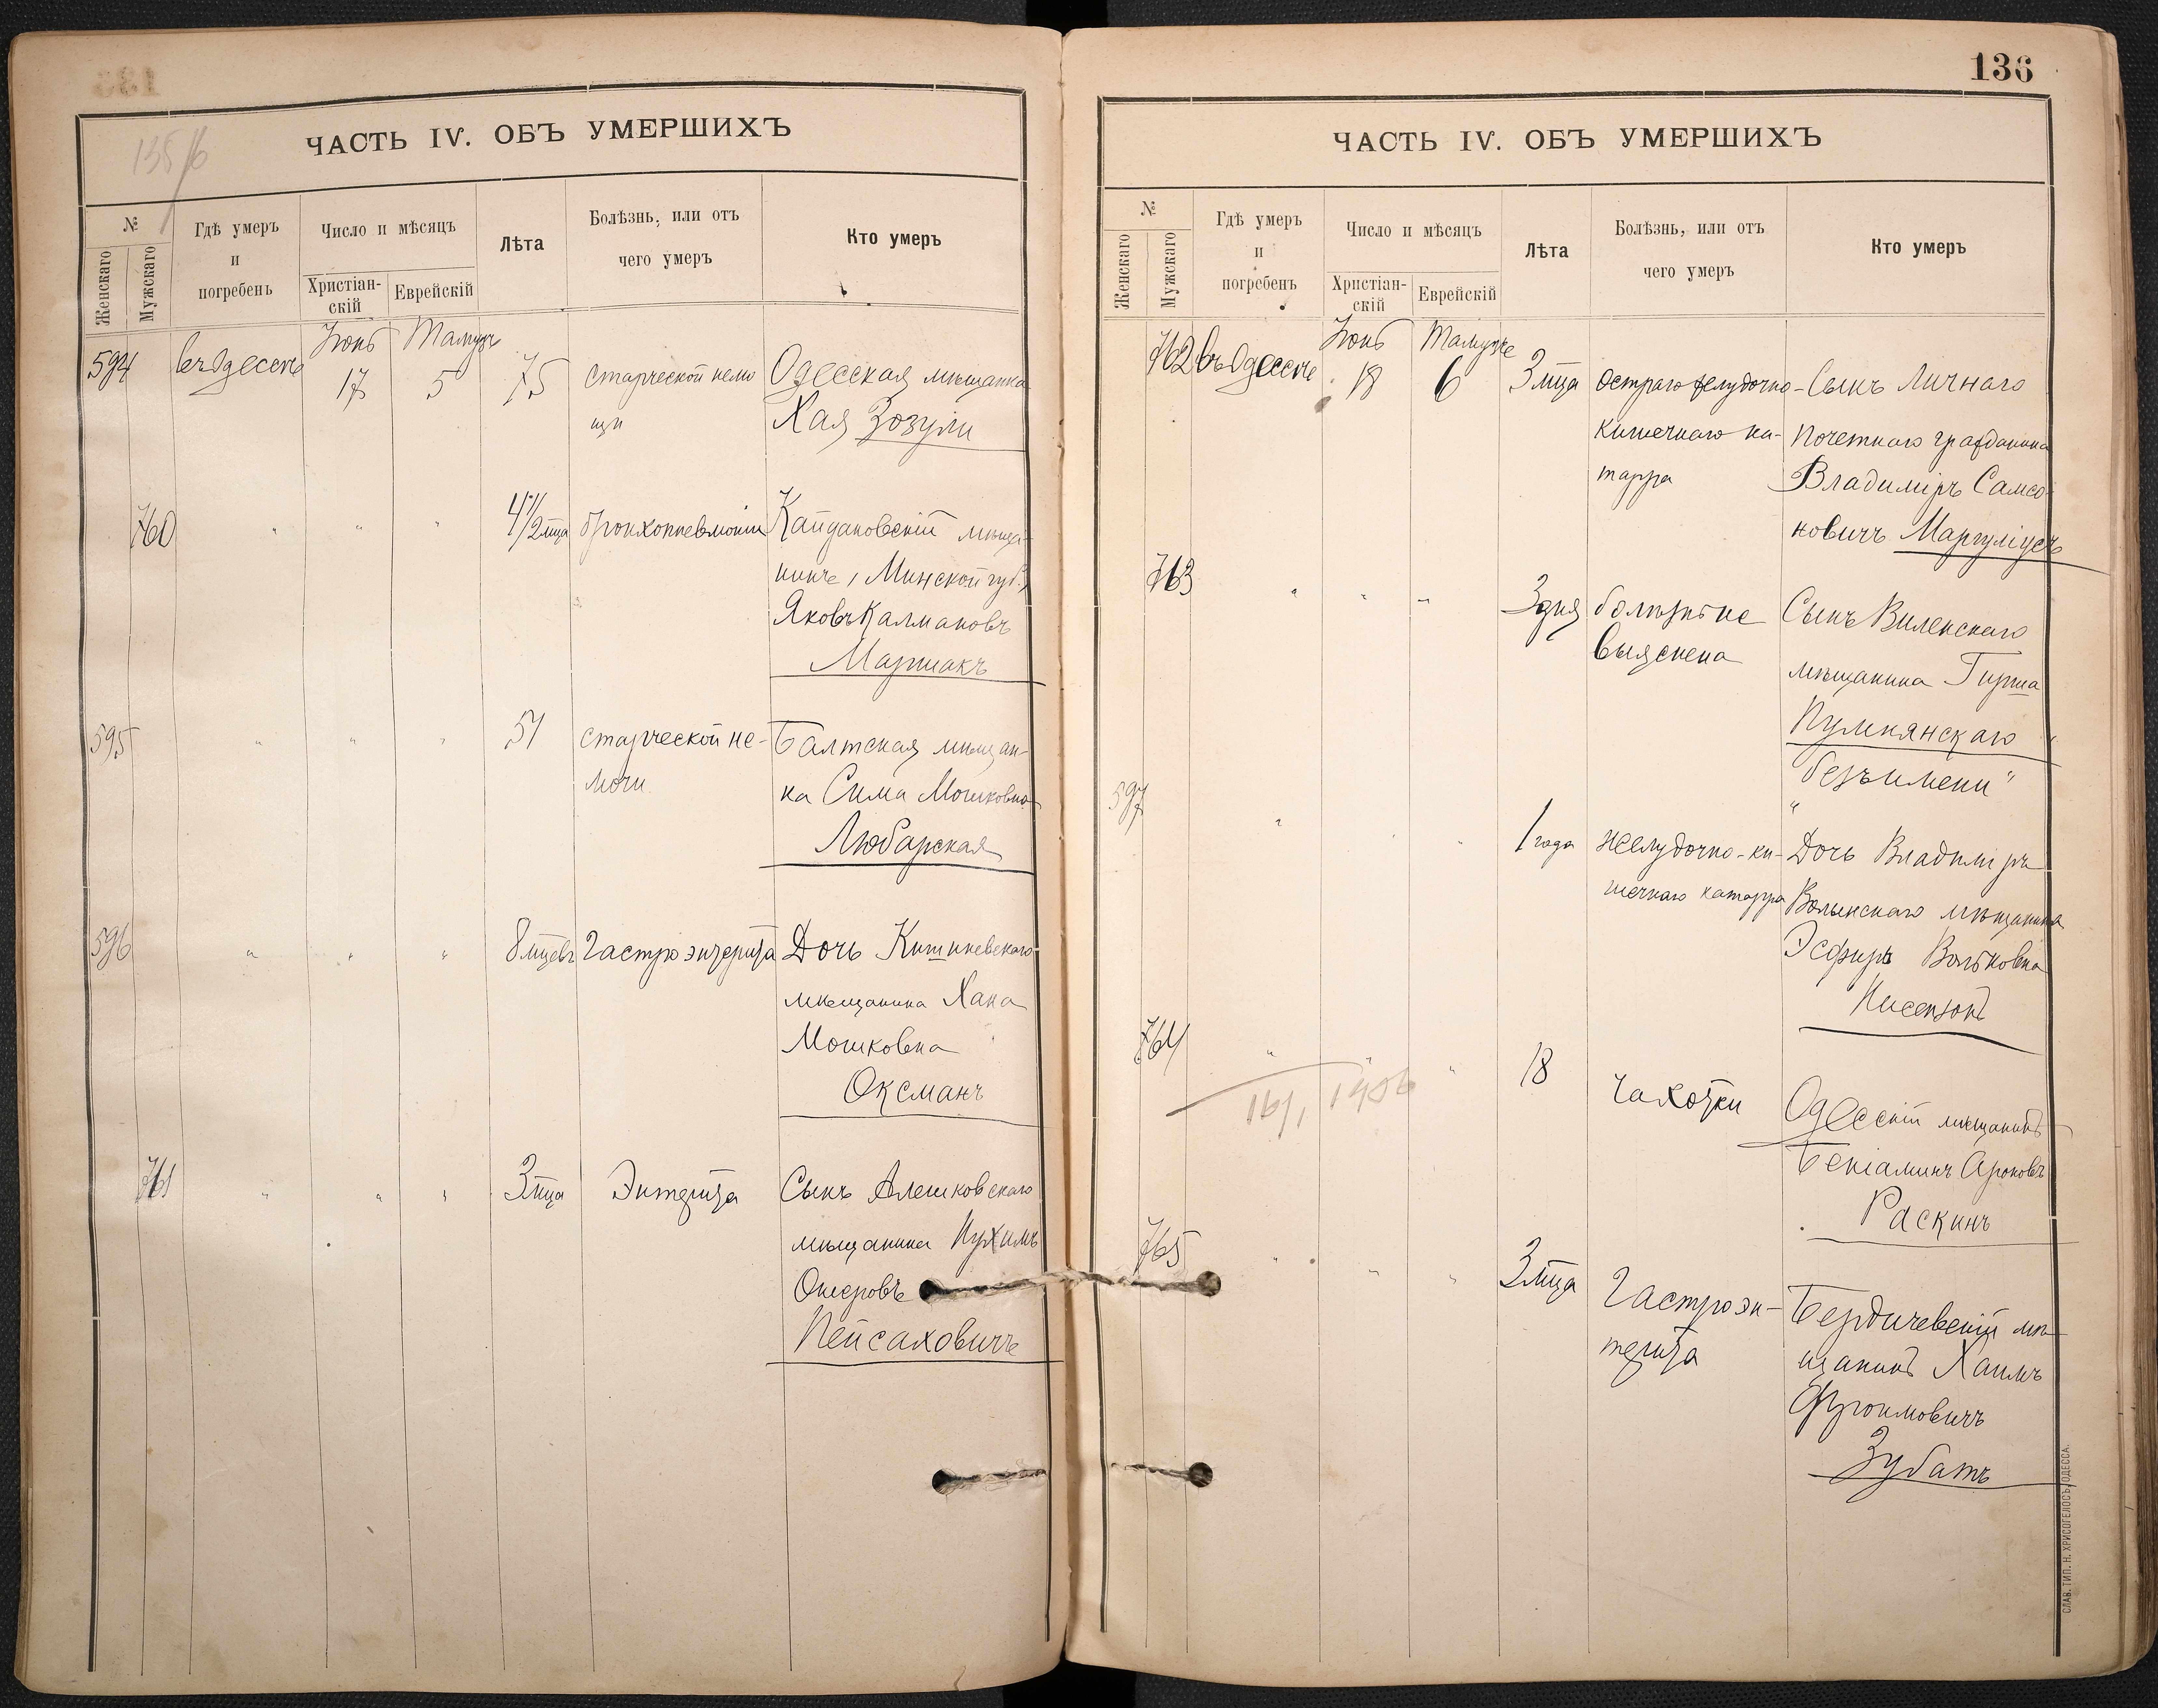 135/б
ЧАСТЬ IV. ОБЪ УМЕРШИХЪ
№
Женскаго
Мужскаго
Гдѣ умеръ
и
погребень
Число и мѣсяцъ
Христіан-
скій
Еврейскій
Лѣта
Болѣзнь, или отъ
чего умеръ
Кто умеръ
Іюнь Тамузъ
594 въ Одессѣ 17 5 75 старческой немо Одесская мѣщанка
щи Хая Зозули
760 " " " 4 1/2 мца бронхопневмоніи Кайдановскій мѣща-
нинъ (Минской губ.)
Яковъ Калмановъ
Маршакъ
595 " " " 51 старческой не- Балтская мѣщан-
мочи ка Сима Мошковна
Любарская
596 " " " 8 мцевъ Гастроэнтерита Дочь Кишиневскаго
мѣщанина Хана
Мошковна
Оксманъ
761 " " " 3 мца Энтерита Сынъ Алешковскаго
мѣщанина Нухимъ
Ошеровъ
Пейсаховичъ
136
ЧАСТЬ IV. ОБЪ УМЕРШИХЪ
№
Женскаго
Мужскаго
Гдѣ умеръ
и
погребенъ
Число и мѣсяцъ
Христіан-
скій
Еврейскій
Лѣта
Болѣзнь, или отъ
чего умеръ
Кто умеръ
Іюнь Тамузъ
762 въ Одессѣ 18 6 3 мца остраго желудочно- Сынъ Личнаго
кишечнаго ка- Почетнаго гражданина
тарра Владиміръ Самсо-
новичъ Маргуліусъ
763 " " " 3 дня болѣзнь не Сынъ Виленскаго
выяснена мѣщанина Гирша
Пумпянскаго
"безъ имени"
597 " " " 1 года желудочно-ки- Дочь Владиміръ
шечнаго катарра Волынскаго мѣщанина
Эсфирь Вольковна
Нисензонъ
764 " " " 18 Чахотки Одесскій мѣщанинъ
16/1 1906
Беніаминъ Ароновъ
Раскинъ
765 " " " 3 мца Гастроэн- Бердичевскій мѣ-
терита щанинъ Хаимъ
Фроимовичъ
Зубатъ
СЛАВ. ТИП. Н. ХРИСОГЕЛОСЪ, ОДЕССА.